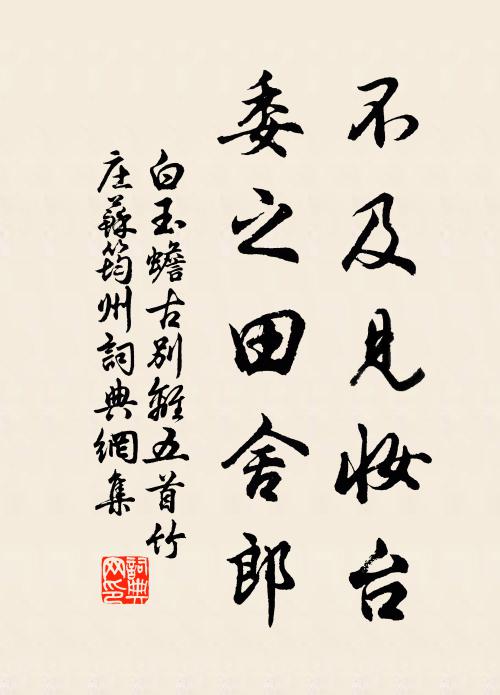 不及見妝台
委之田舍郎
白玉蟾古別離五首竹
庄蘇筠州詞典網集
詞典网印